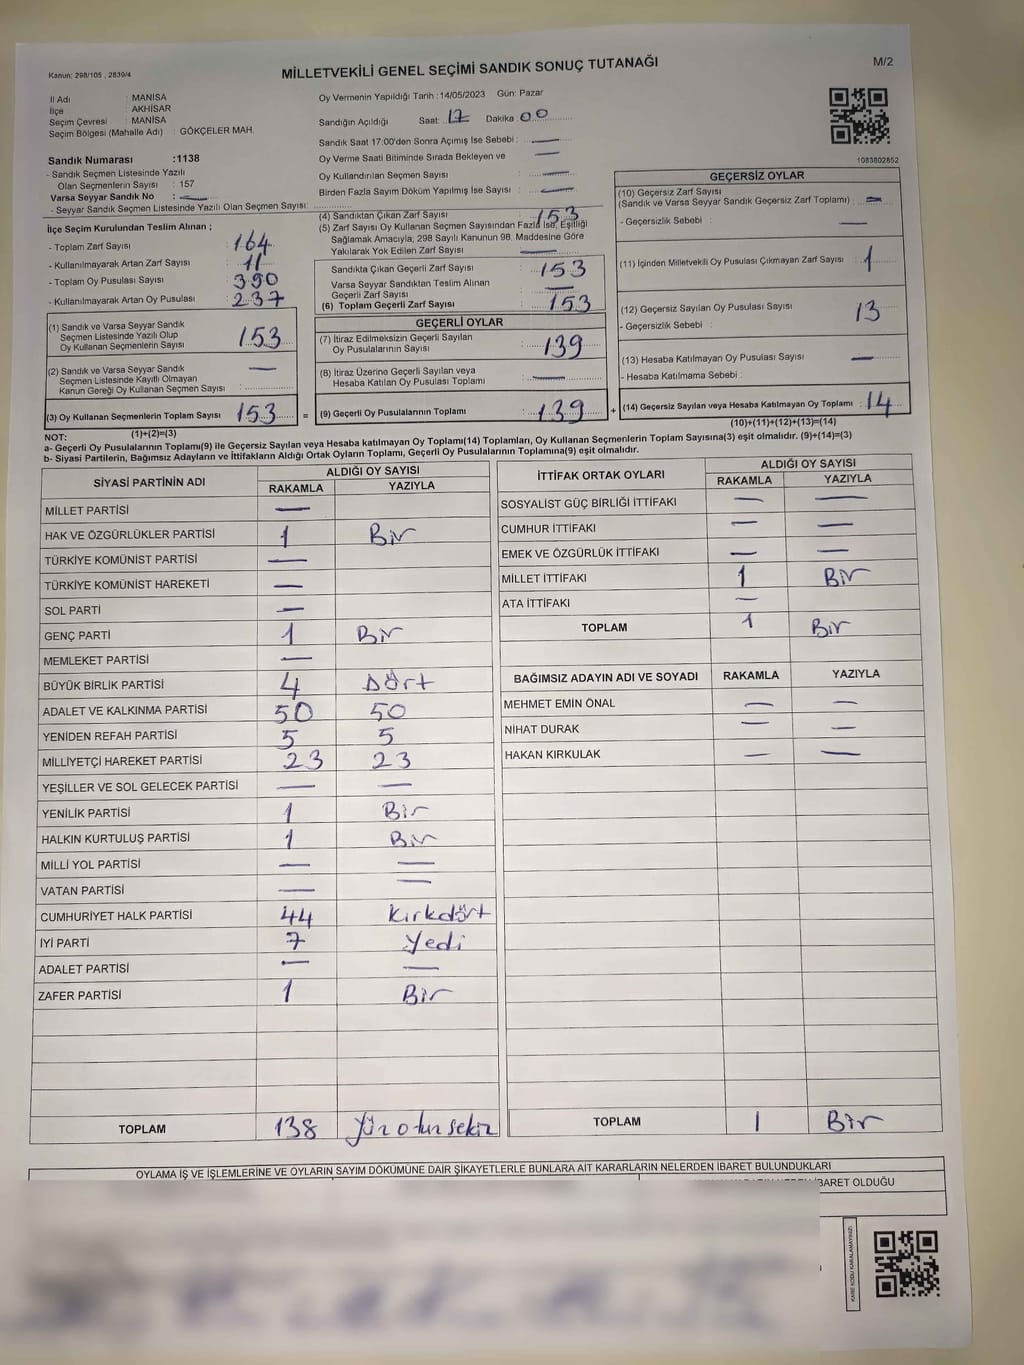 Kanun: 298/105 , 2839/4
MİLLETVEKİLİ GENEL SEÇİMİ SANDIK SONUÇ TUTANAĞI
M/2
İl Adı : MANİSA
İlçe : AKHİSAR
Seçim Çevresi : MANİSA
Seçim Bölgesi (Mahalle Adı) : GÖKÇELER MAH.
Sandık Numarası :1138
- Sandık Seçmen Listesinde Yazılı
Olan Seçmenlerin Sayısı : 157
Varsa Seyyar Sandık No : —
- Seyyar Sandık Seçmen Listesinde Yazılı Olan Seçmen Sayısı:
Oy Vermenin Yapıldığı Tarih :14/05/2023 Gün: Pazar
Sandığın Açıldığı Saat: 17 Dakika: 00
Sandık Saat 17:00'den Sonra Açımış İse Sebebi : —
Oy Verme Saati Bitiminde Sırada Bekleyen ve —
Oy Kullandırılan Seçmen Sayısı : —
Birden Fazla Sayım Döküm Yapılmış İse Sayısı : —
1083802852
İlçe Seçim Kurulundan Teslim Alınan ;
- Toplam Zarf Sayısı : 164
- Kullanılmayarak Artan Zarf Sayısı : 11
- Toplam Oy Pusulası Sayısı : 390
- Kullanılmayarak Artan Oy Pusulası : 237
(1) Sandık ve Varsa Seyyar Sandık
Seçmen Listesinde Yazılı Olup
Oy Kullanan Seçmenlerin Sayısı : 153
(2) Sandık ve Varsa Seyyar Sandık —
Seçmen Listesinde Kayıtlı Olmayan
Kanun Gereği Oy Kullanan Seçmen Sayısı :
(3) Oy Kullanan Seçmenlerin Toplam Sayısı : 153 =
(1)+(2)=(3)
(4) Sandıktan Çıkan Zarf Sayısı : 153
(5) Zarf Sayısı Oy Kullanan Seçmen Sayısından Fazla İse, Eşitliği
Sağlamak Amacıyla; 298 Sayılı Kanunun 98. Maddesine Göre
Yakılarak Yok Edilen Zarf Sayısı : —
Sandıkta Çıkan Geçerli Zarf Sayısı : 153
Varsa Seyyar Sandıktan Teslim Alınan
Geçerli Zarf Sayısı : —
(6) Toplam Geçerli Zarf Sayısı : 153
GEÇERLİ OYLAR
(7) İtiraz Edilmeksizin Geçerli Sayılan
Oy Pusulalarının Sayısı : 139
(8) İtiraz Üzerine Geçerli Sayılan veya
Hesaba Katılan Oy Pusulası Toplamı : —
(9) Geçerli Oy Pusulalarının Toplamı : 139 +
GEÇERSİZ OYLAR
(10) Geçersiz Zarf Sayısı
(Sandık ve Varsa Seyyar Sandık Geçersiz Zarf Toplamı) : —
- Geçersizlik Sebebi : —
(11) İçinden Milletvekili Oy Pusulası Çıkmayan Zarf Sayısı : 1
(12) Geçersiz Sayılan Oy Pusulası Sayısı : 13
- Geçersizlik Sebebi :
(13) Hesaba Katılmayan Oy Pusulası Sayısı : —
- Hesaba Katılmama Sebebi :
(14) Geçersiz Sayılan veya Hesaba Katılmayan Oy Toplamı : 14
(10)+(11)+(12)+(13)=(14)
NOT:
a- Geçerli Oy Pusulalarının Toplamı(9) ile Geçersiz Sayılan veya Hesaba katılmayan Oy Toplamı(14) Toplamları, Oy Kullanan Seçmenlerin Toplam Sayısına(3) eşit olmalıdır. (9)+(14)=(3)
b- Siyasi Partilerin, Bağımsız Adayların ve İttifakların Aldığı Ortak Oyların Toplamı, Geçerli Oy Pusulalarının Toplamına(9) eşit olmalıdır.
SİYASİ PARTİNİN ADI ALDIĞI OY SAYISI
RAKAMLA YAZIYLA
MİLLET PARTİSİ —
HAK VE ÖZGÜRLÜKLER PARTİSİ 1 Bir
TÜRKİYE KOMÜNİST PARTİSİ —
TÜRKİYE KOMÜNİST HAREKETİ —
SOL PARTİ —
GENÇ PARTİ 1 Bir
MEMLEKET PARTİSİ —
BÜYÜK BİRLİK PARTİSİ 4 Dört
ADALET VE KALKINMA PARTİSİ 50 50
YENİDEN REFAH PARTİSİ 5 5
MİLLİYETÇİ HAREKET PARTİSİ 23 23
YEŞİLLER VE SOL GELECEK PARTİSİ — —
YENİLİK PARTİSİ 1 Bir
HALKIN KURTULUŞ PARTİSİ 1 Bir
MİLLİ YOL PARTİSİ — —
VATAN PARTİSİ — —
CUMHURİYET HALK PARTİSİ 44 Kırkdört
İYİ PARTİ 7 Yedi
ADALET PARTİSİ — —
ZAFER PARTİSİ 1 Bir
TOPLAM 138 Yüzotuzsekiz
İTTİFAK ORTAK OYLARI ALDIĞI OY SAYISI
RAKAMLA YAZIYLA
SOSYALİST GÜÇ BİRLİĞİ İTTİFAKI — —
CUMHUR İTTİFAKI — —
EMEK VE ÖZGÜRLÜK İTTİFAKI — —
MİLLET İTTİFAKI 1 Bir
ATA İTTİFAKI —
TOPLAM 1 Bir
BAĞIMSIZ ADAYIN ADI VE SOYADI RAKAMLA YAZIYLA
MEHMET EMİN ÖNAL — —
NİHAT DURAK — —
HAKAN KIRKULAK — —
TOPLAM 1 Bir
OYLAMA İŞ VE İŞLEMLERİNE VE OYLARIN SAYIM DÖKÜMÜNE DAİR ŞİKAYETLERLE BUNLARA AİT KARARLARIN NELERDEN İBARET BULUNDUKLARI
İBARET OLDUĞU
KARE KODU KARALAMAYINIZ!